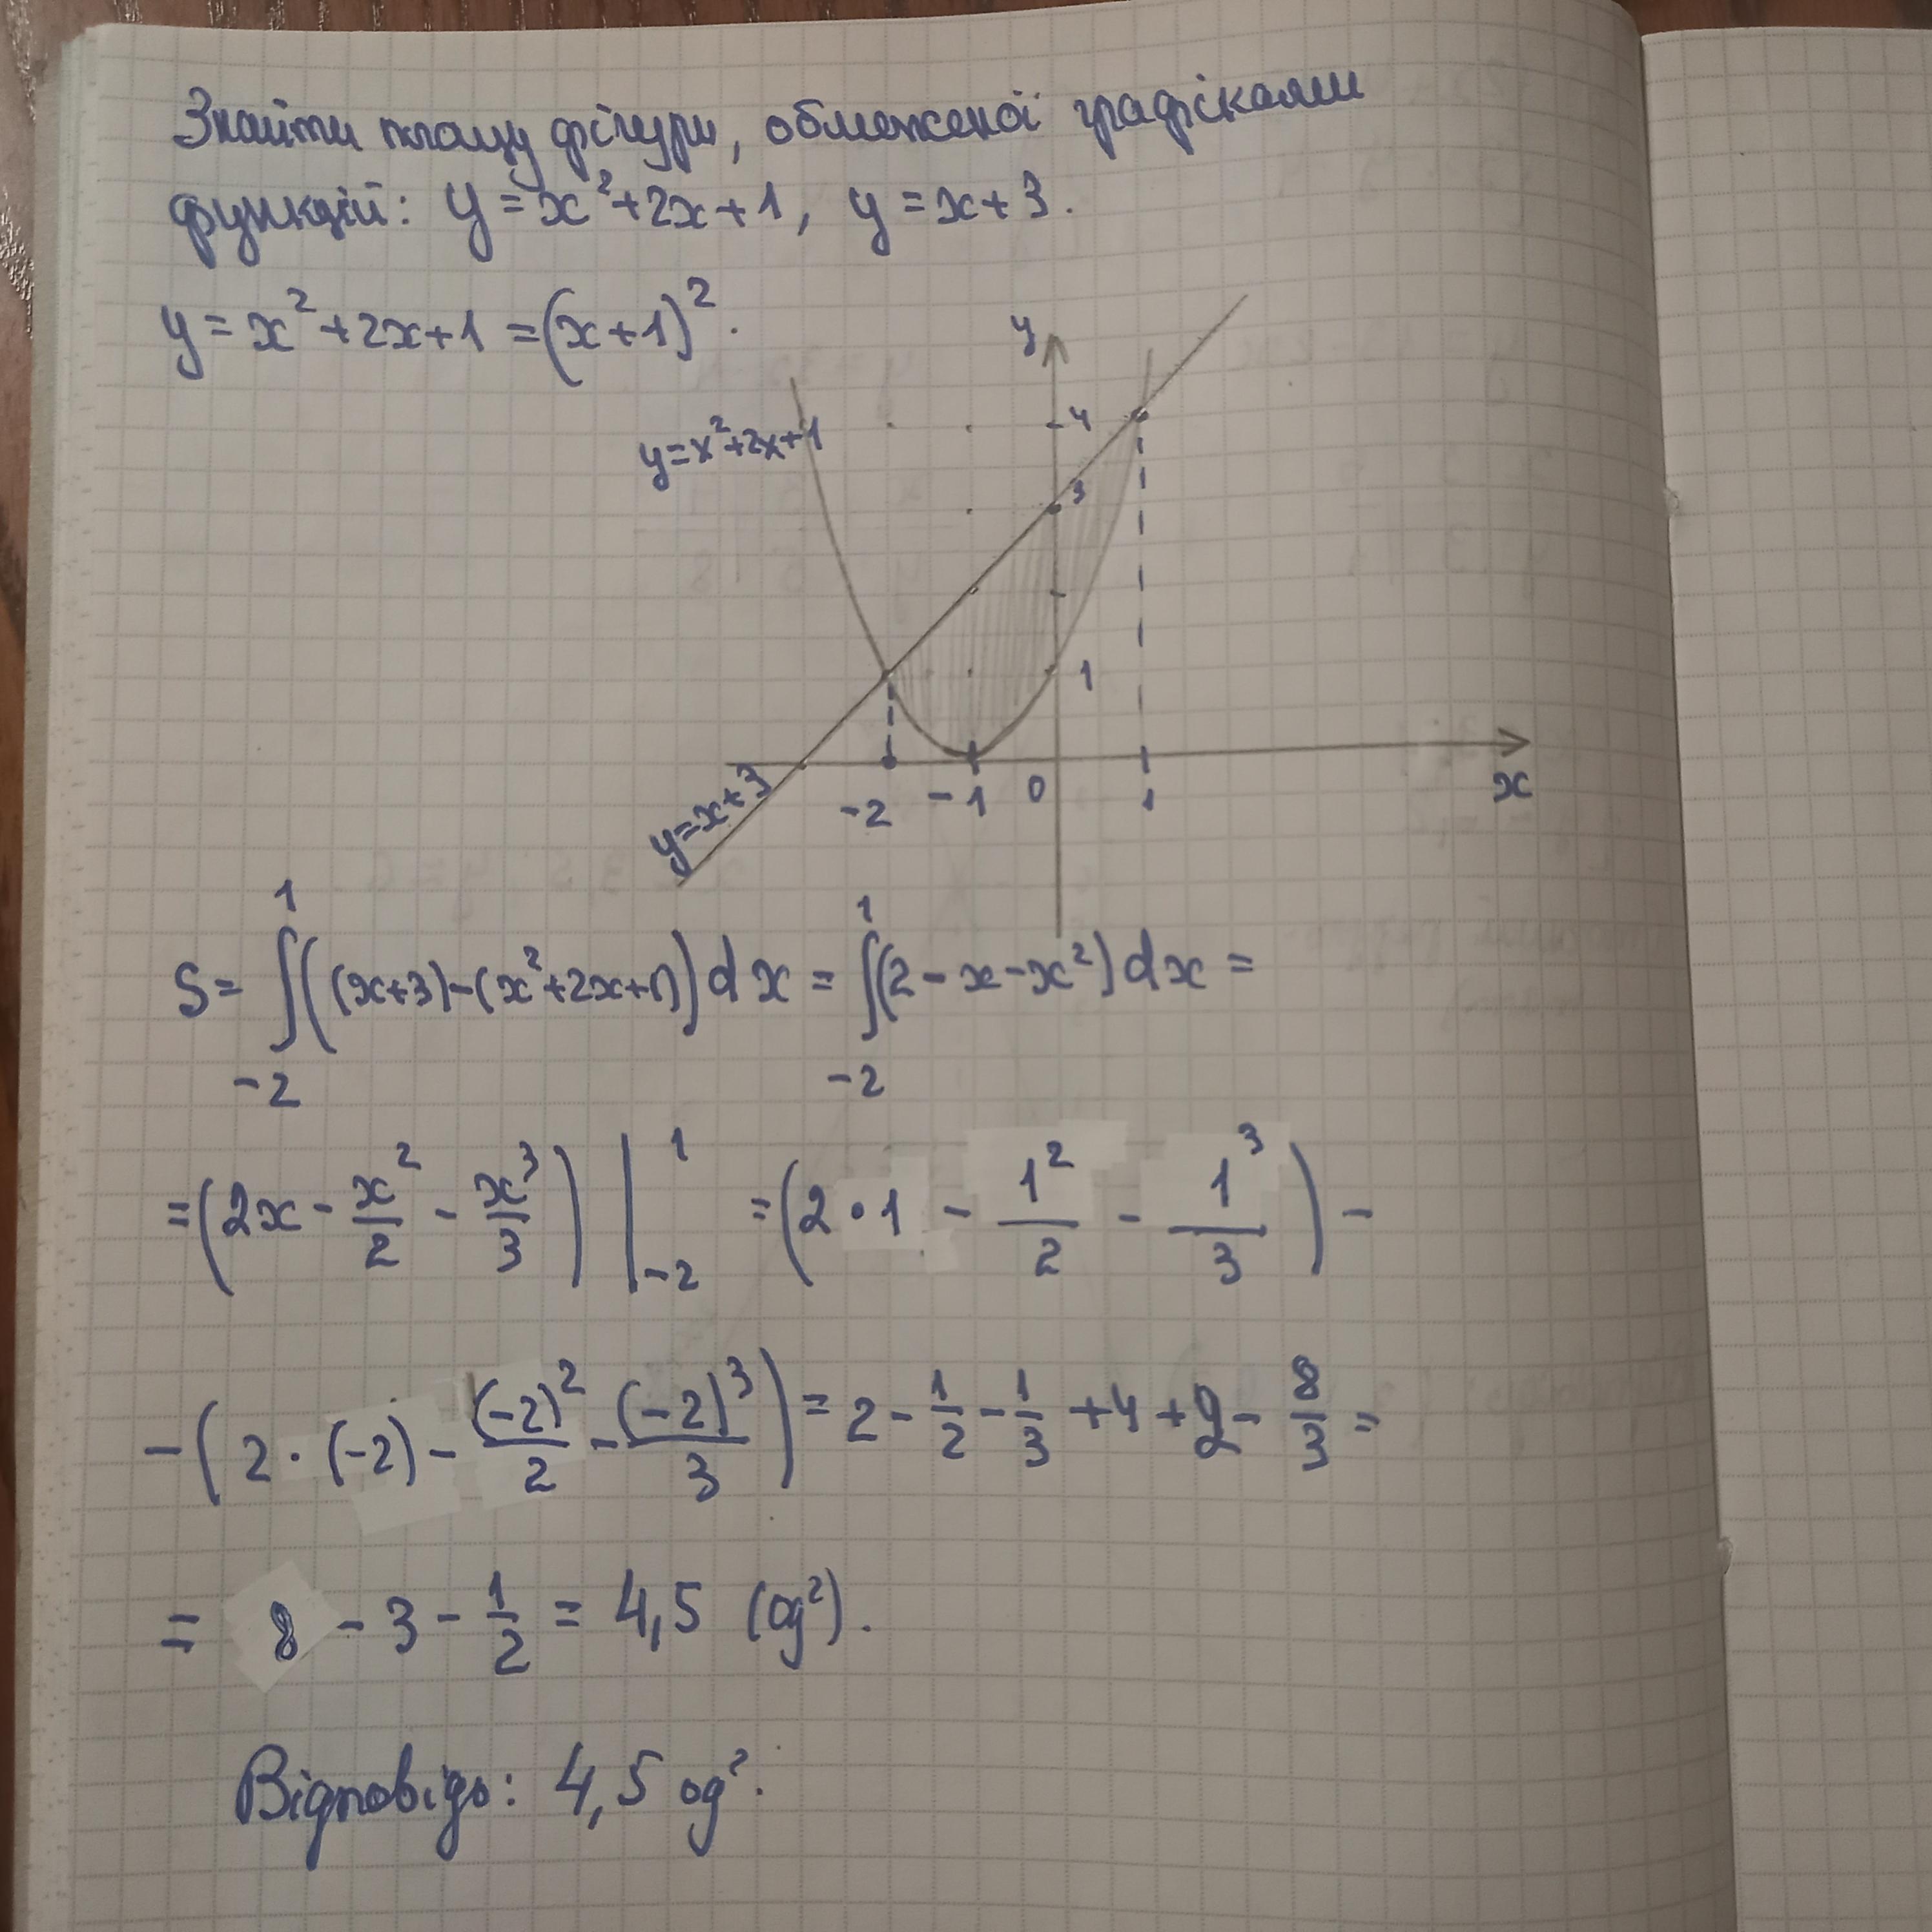 Знайти площу фігури, обмеженої графіками
функцій: y = x²+2x+1, y = x+3.
y = x²+2x+1 = (x+1)².
y
4
y=x²+2x+1
3
1
-2 -1 0 1 x
y=x+3
S = ∫₋₂¹ ((x+3)-(x²+2x+1)) dx = ∫₋₂¹ (2-x-x²) dx =
= (2x - x²/2 - x³/3) |₋₂¹ = (2·1 - 1²/2 - 1³/3) -
- (2·(-2) - (-2)²/2 - (-2)³/3) = 2 - 1/2 - 1/3 + 4 + 2 - 8/3 =
= 8 - 3 - 1/2 = 4,5 (од²).
Відповідь: 4,5 од².